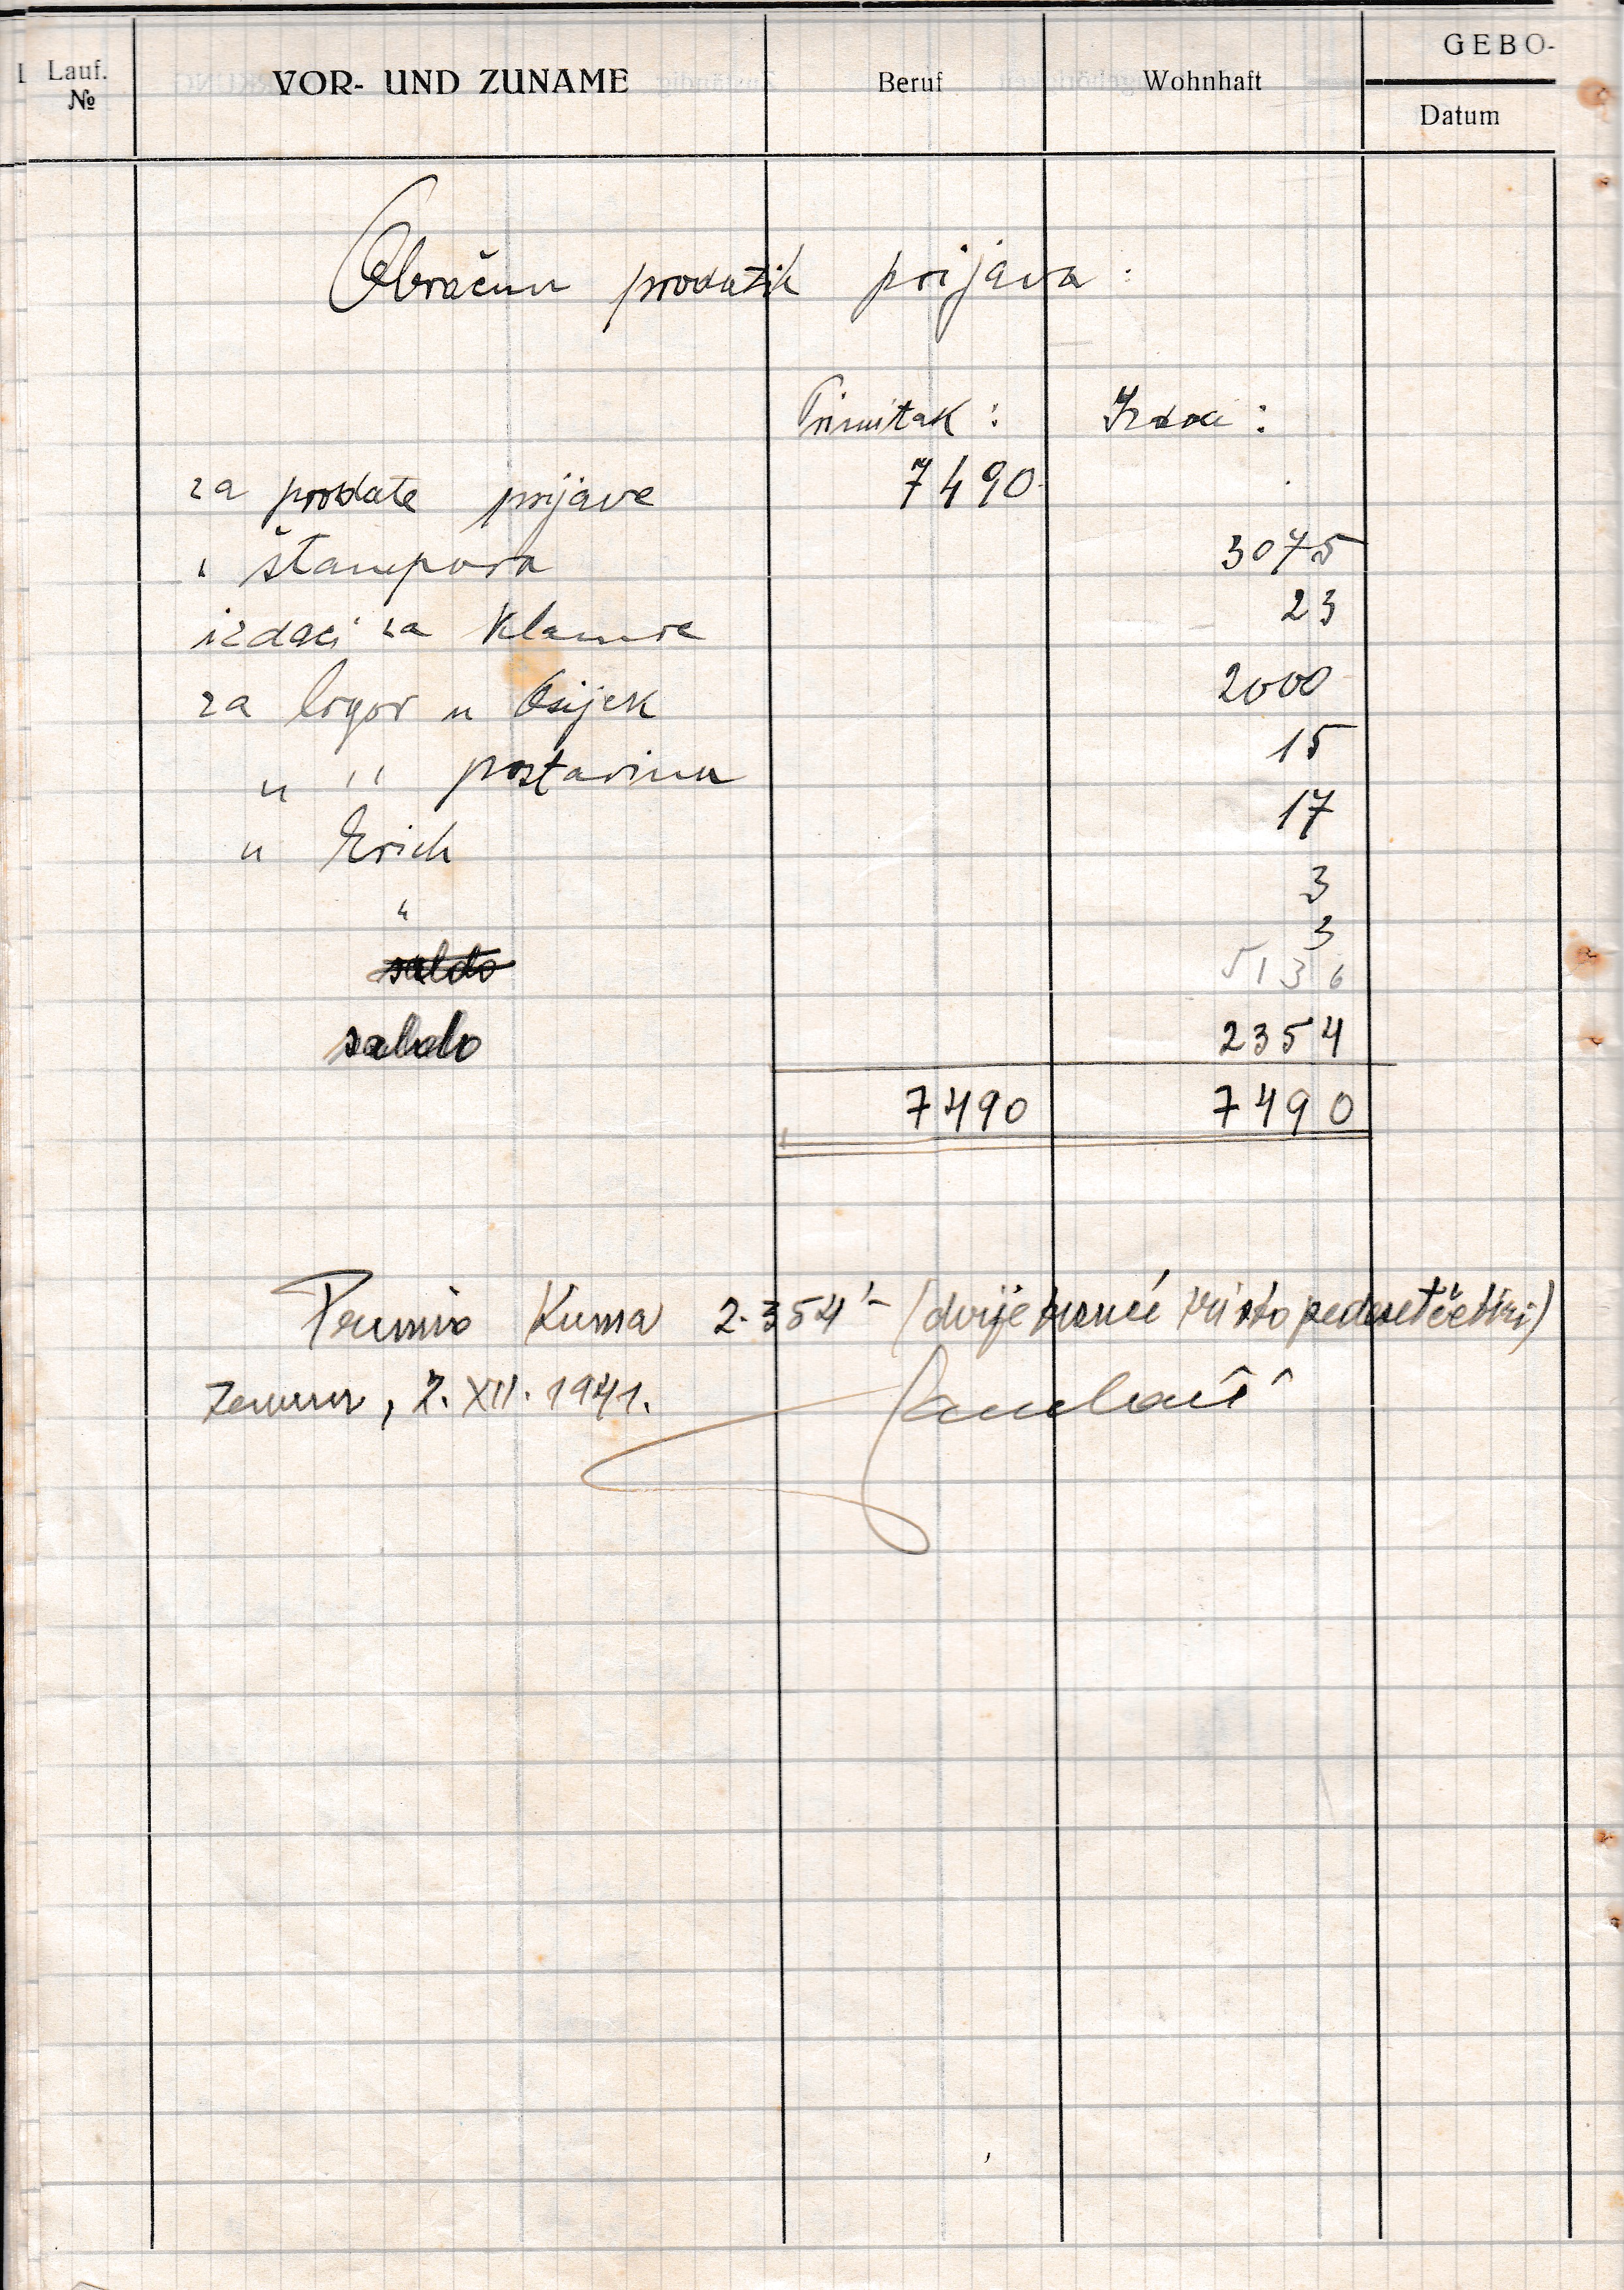 Lauf. № VOR- UND ZUNAME Beruf Wohnhaft GEBO-
Datum
Obračun prodatih prijava :
Primitak : Izdaci :
za prodate prijave 7490
" štampara 3075
izdaci za klamre 23
za logor u Osijek 2000
" " postarina 15
" Erich 17
" 3
3
saldo 5136
saldo 2354
7490 7490
Primio Kuna 2.354'- (dvije tisuće tri sto pedeset četiri)
Zemun, 2. XII. 1941.